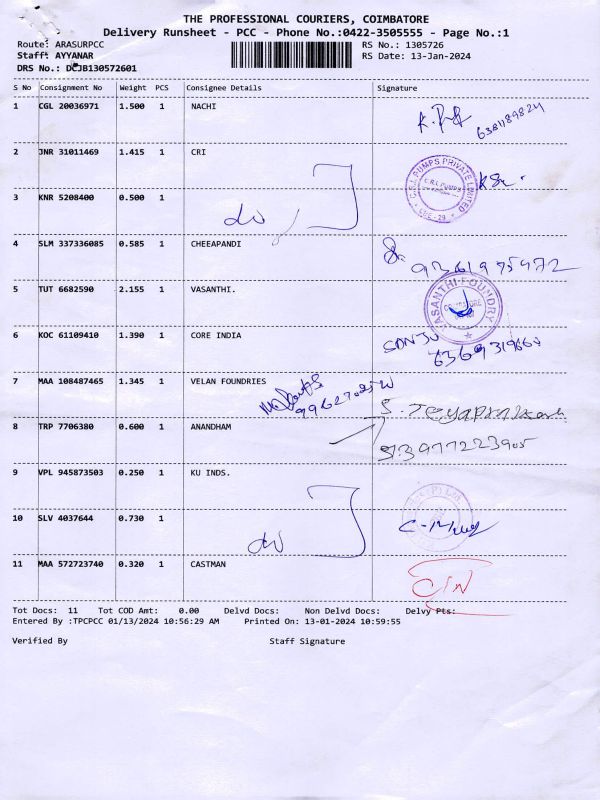 THE PROFESSIONAL COURIERS, COIMBATORE
Delivery Runsheet - PCC - Phone No.:0422-3505555 - Page No.:1
Route: ARASURPCC RS No.: 1305726
Staff: AYYANAR RS Date: 13-Jan-2024
DRS No.: DCJB130572601
S No Consignment No Weight PCS Consignee Details Signature
1 CGL 20036971 1.500 1 NACHI
2 JNR 31011469 1.415 1 CRI
C.R.I. PUMPS PRIVATE LIMITED
3 KNR 5208400 0.500 1
4 SLM 337336085 0.585 1 CHEEPANDI
9361975972
5 TUT 6682590 2.155 1 VASANTHI.
VASANTHI FOUNDRY
6 KOC 61109410 1.390 1 CORE INDIA
7 MAA 108487465 1.345 1 VELAN FOUNDRIES
8 TRP 7706380 0.600 1 ANANDHAM
9 VPL 945873503 0.250 1 KU INDS.
10 SLV 4037644 0.730 1
11 MAA 572723740 0.320 1 CASTMAN
Tot Docs: 11 Tot COD Amt: 0.00 Delvd Docs: Non Delvd Docs: Delvy Pts:
Entered By :TPCPCC 01/13/2024 10:56:29 AM Printed On: 13-01-2024 10:59:55
Verified By Staff Signature